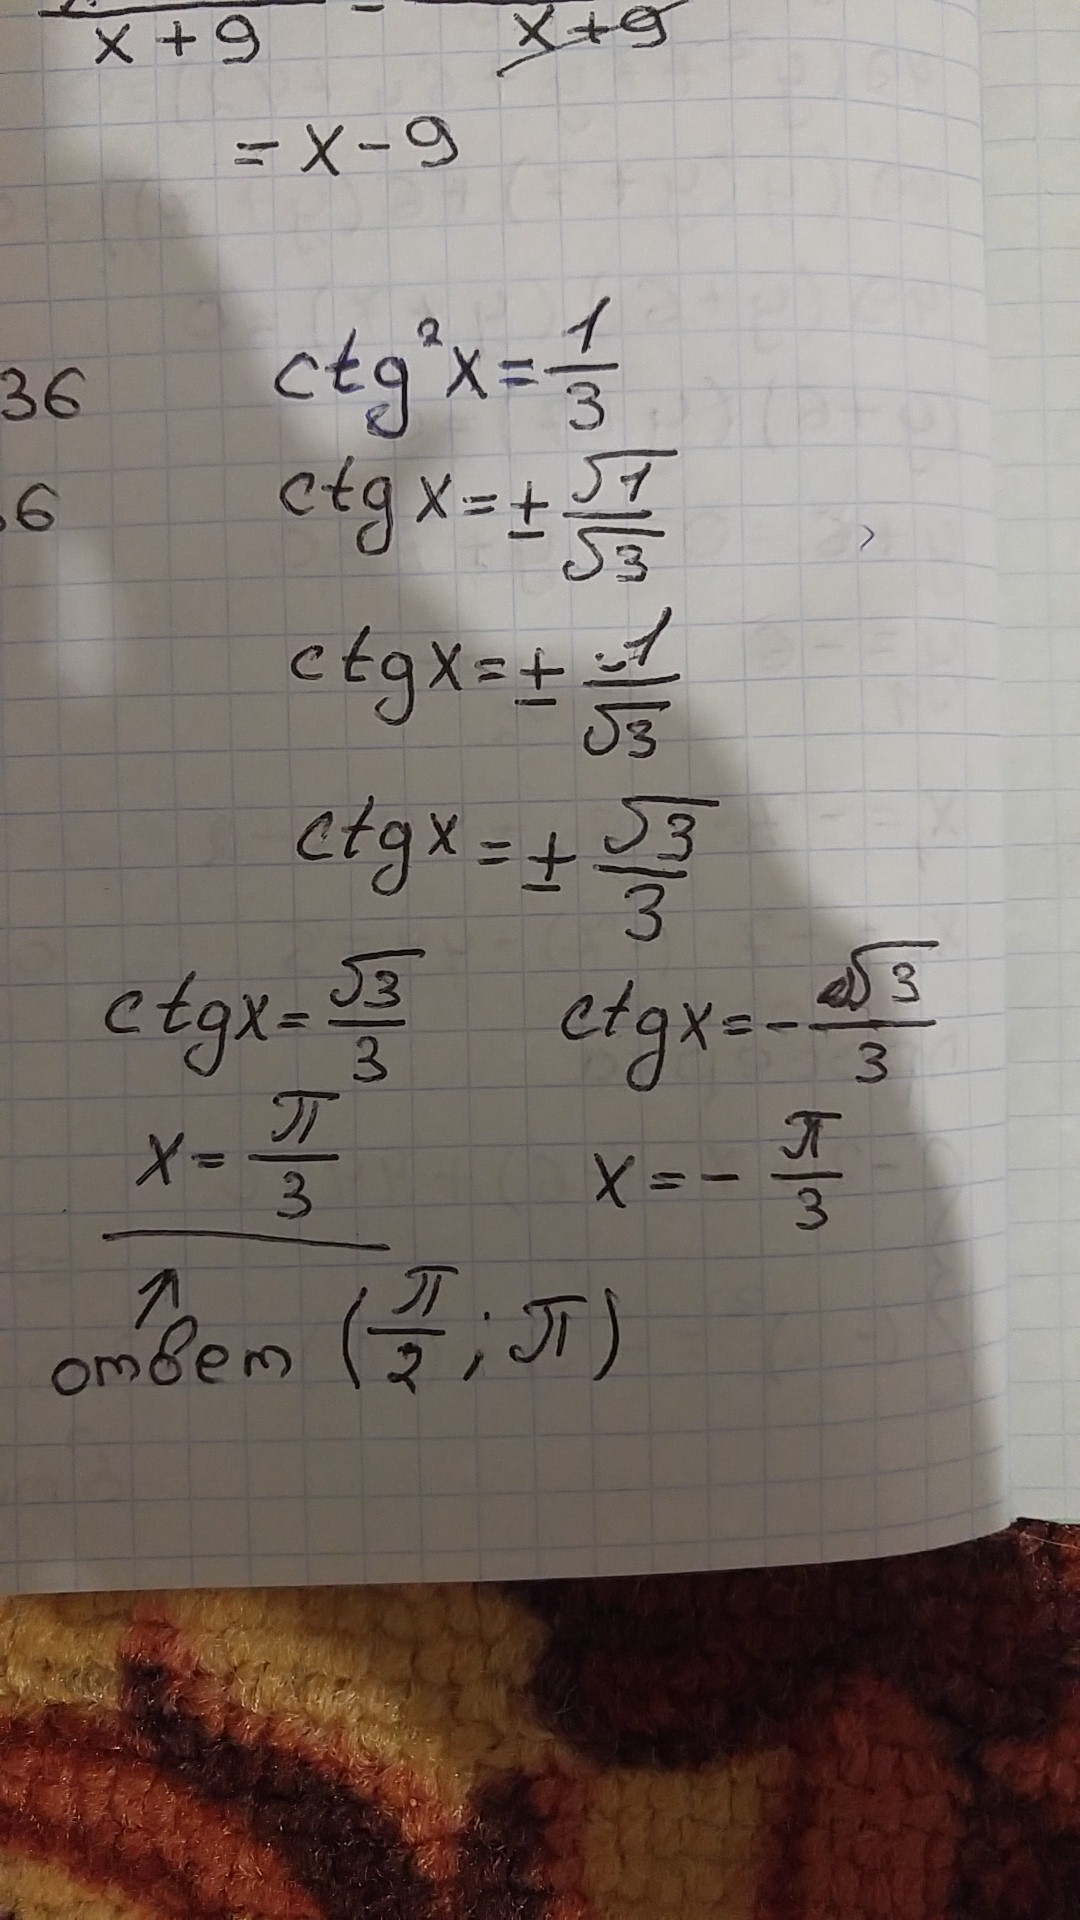 x+9 - x+9
= x - 9
36 ctg²x = 1/3
6 ctg x = ± √1/√3
ctg x = ± 1/√3
ctg x = ± √3/3
ctg x = √3/3 ctg x = - √3/3
x = π/3 x = - π/3
ответ (π/2 ; π)